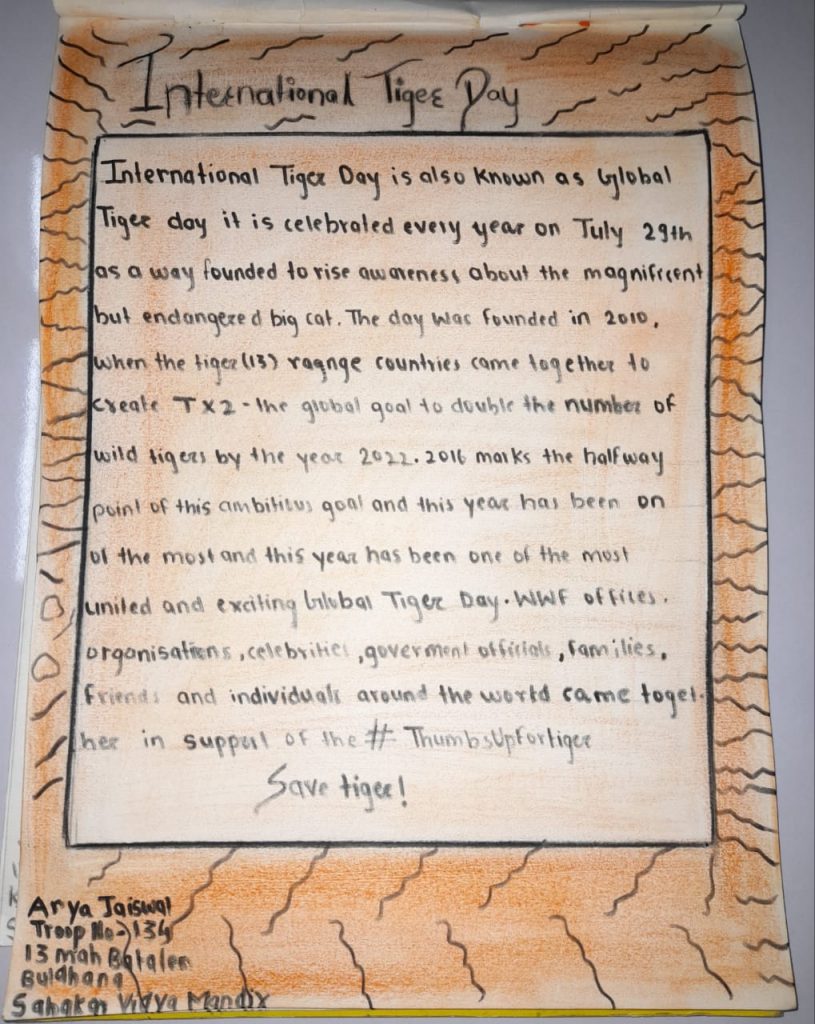 International Tiger Day
International Tiger Day is also known as Global
Tiger day it is celebrated every year on July 29th
as a way founded to rise awareness about the magnificent
but endangered big cat. The day was founded in 2010,
when the tiger (13) ragnge countries came together to
create TX2 - the global goal to double the number of
wild tigers by the year 2022. 2016 marks the halfway
point of this ambitius goal and this year has been on
of the most and this year has been one of the most
united and exciting Global Tiger Day. WWF offices.
organisations, celebrities, goverment officials, families,
friends and individuals around the world came toget-
her in support of the # ThumbsUpFortiger
Save tiger!
Arya Jaiswal
Troop No-> 134
13 mah Batalen
Buldhana
Sahakar Vidya Mandir